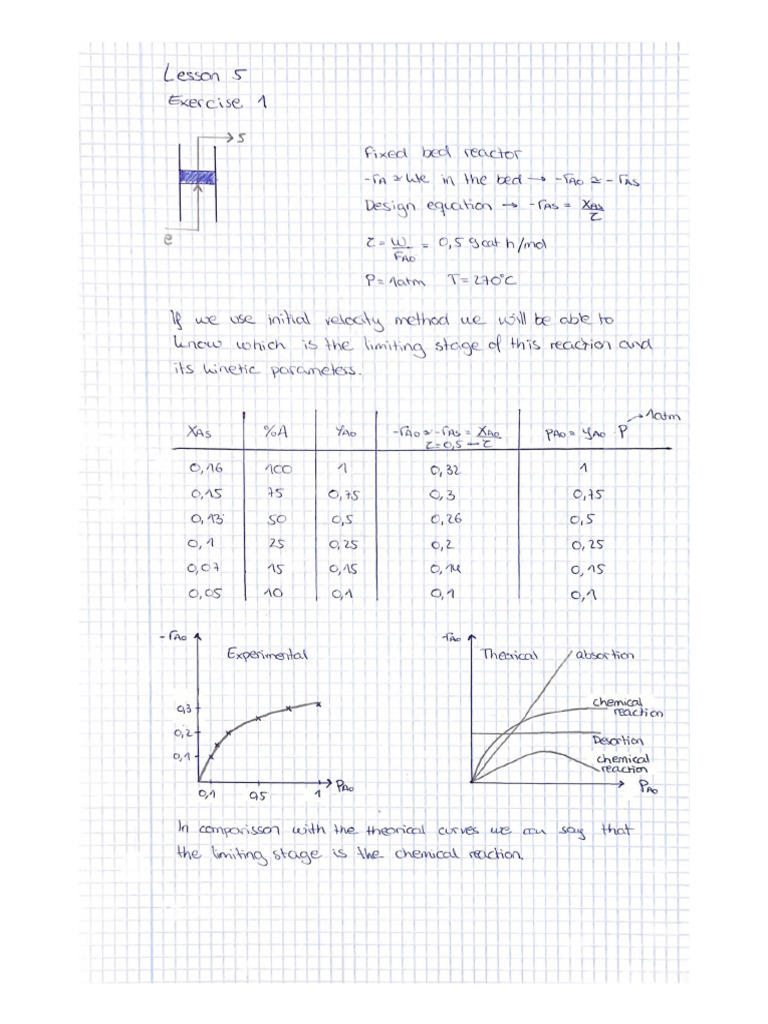 Lesson 5
Exercise 1
s
e
Fixed bed reactor
-rA ≃ cte in the bed → -rA0 ≃ -rAs
Design equation → -rAs = XAs/τ
τ = W/FA0 = 0,5 gcat h/mol
P = 1atm T = 270°C
If we use initial velocity method we will be able to
know which is the limiting stage of this reaction and
its kinetic parameters.
XAs %A yA0 -rA0 ≃ -rAs = XA0/τ τ=0,5 pA0 = yA0 · P → 1atm
0,16 100 1 0,32 1
0,15 75 0,75 0,3 0,75
0,13 50 0,5 0,26 0,5
0,1 25 0,25 0,2 0,25
0,07 15 0,15 0,14 0,15
0,05 10 0,1 0,1 0,1
-rA0
Experimental
0,3
0,2
0,1
0,1 0,5 1 PA0
-rA0
Theorical
absortion
chemical
reaction
Desortion
chemical
reaction
PA0
In comparisson with the theorical curves we can say that
the limiting stage is the chemical reaction.